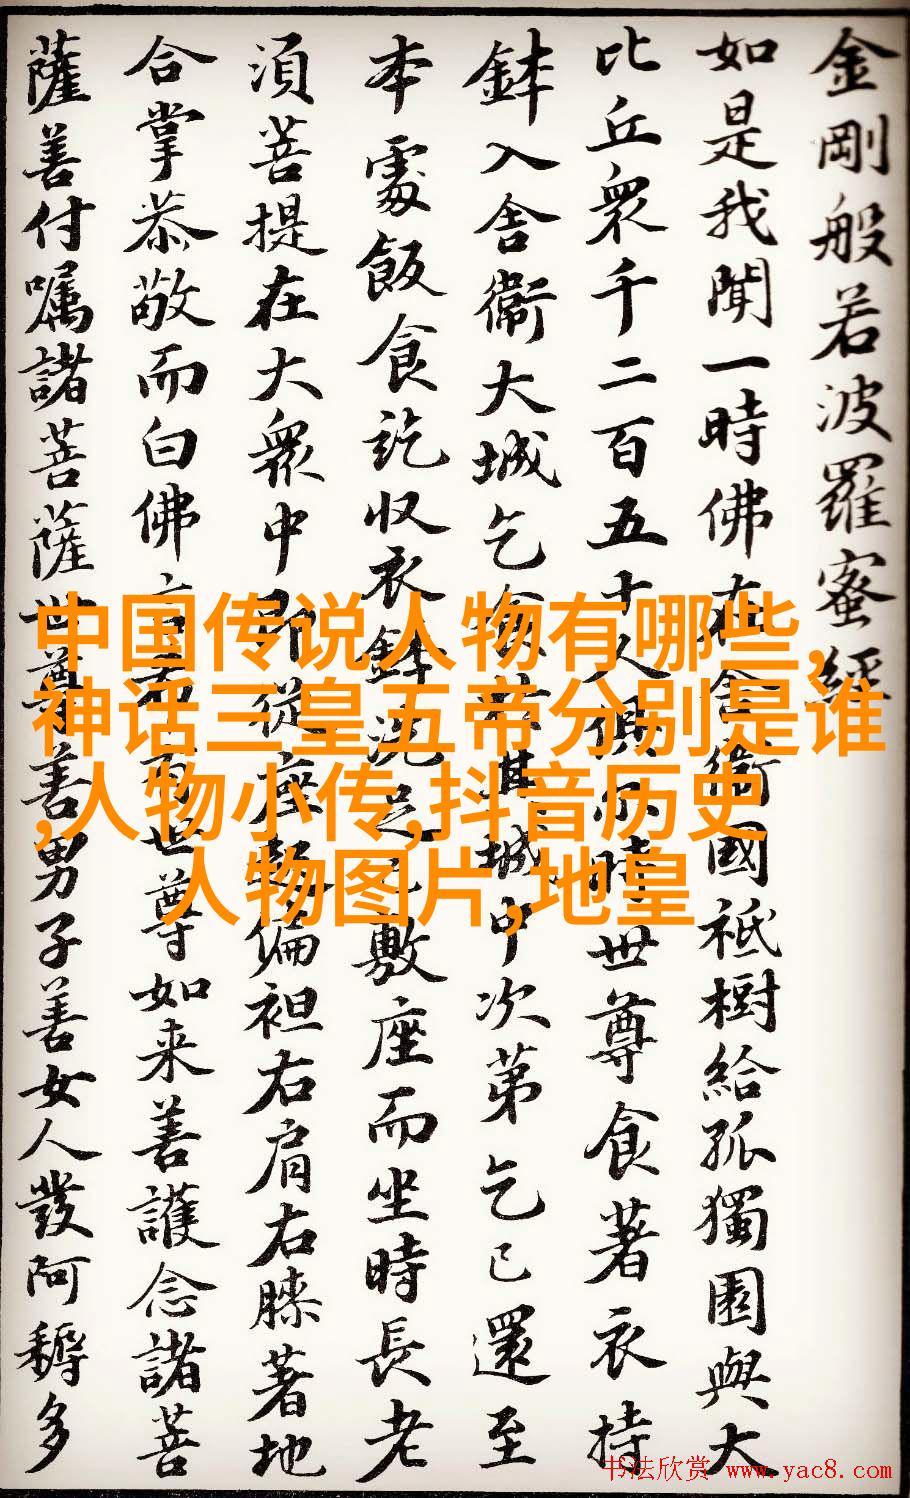 金剛般若波羅蜜經
如是我聞一時佛在舍衛國祇樹給孤獨園與大
比丘衆千二百五十人俱尒時世尊食著衣持
鉢入舍衞大城乞食於其城中次第乞已還至
本處飯食訖收衣鉢洗足已敷座而坐時長老
湏菩提在大衆中即從座起偏袒右肩右膝著地
合掌恭敬而白佛言希有世尊如来善護念諸菩
薩善付嘱諸菩薩世尊善男子善女人發阿耨多
中国传说人物有哪些,
神话三皇五帝分别是谁
,人物小传,抖音历史
人物图片,地皇
书法欣赏 www.yac8.com